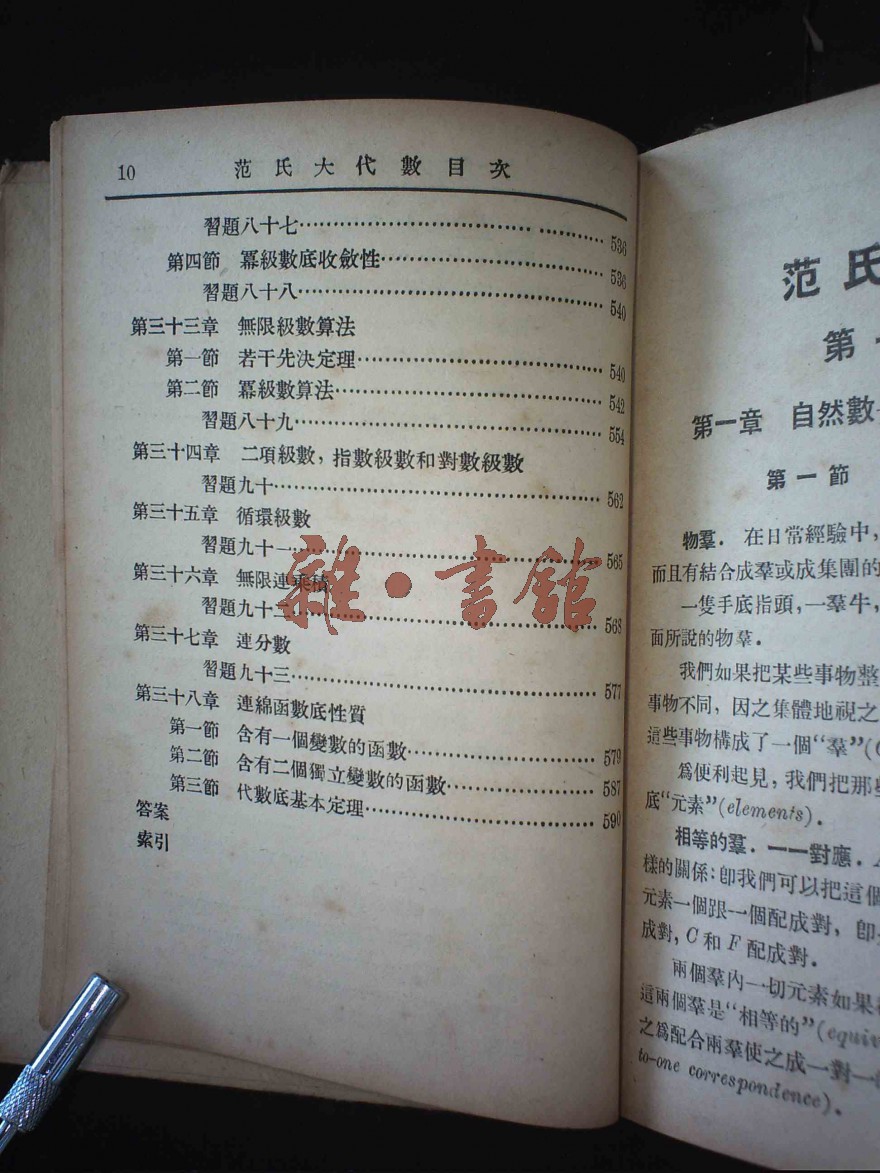 10 范氏大代數目次
習題八十七 536
第四節 冪級數底收斂性 536
習題八十八 540
第三十三章 無限級數算法
第一節 若干先決定理 540
第二節 冪級數算法 542
習題八十九 554
第三十四章 二項級數，指數級數和對數級數
習題九十 562
第三十五章 循環級數
習題九十一 565
第三十六章 無限連乘積
習題九十二 568
第三十七章 連分數
習題九十三 577
第三十八章 連綿函數底性質
第一節 含有一個變數的函數 579
第二節 含有二個獨立變數的函數 587
第三節 代數底基本定理 590
答案
索引
雜·書館
范氏
第一章 自然數
第一節
物羣．在日常經驗中，
而且有結合成羣或成集團的
一隻手底指頭，一羣牛，
面所說的物羣．
我們如果把某些事物整
事物不同，因之集體地視之
這些事物構成了一個“羣”(
爲便利起見，我們把那些
底“元素”(elements)．
相等的羣．一一對應．
樣的關係：卽我們可以把這個
元素一個跟一個配成對，卽
成對，C和F配成對．
兩個羣內一切元素如果
這兩個羣是“相等的”(equiv
之爲配合兩羣使之成一對一
to-one correspondence)．